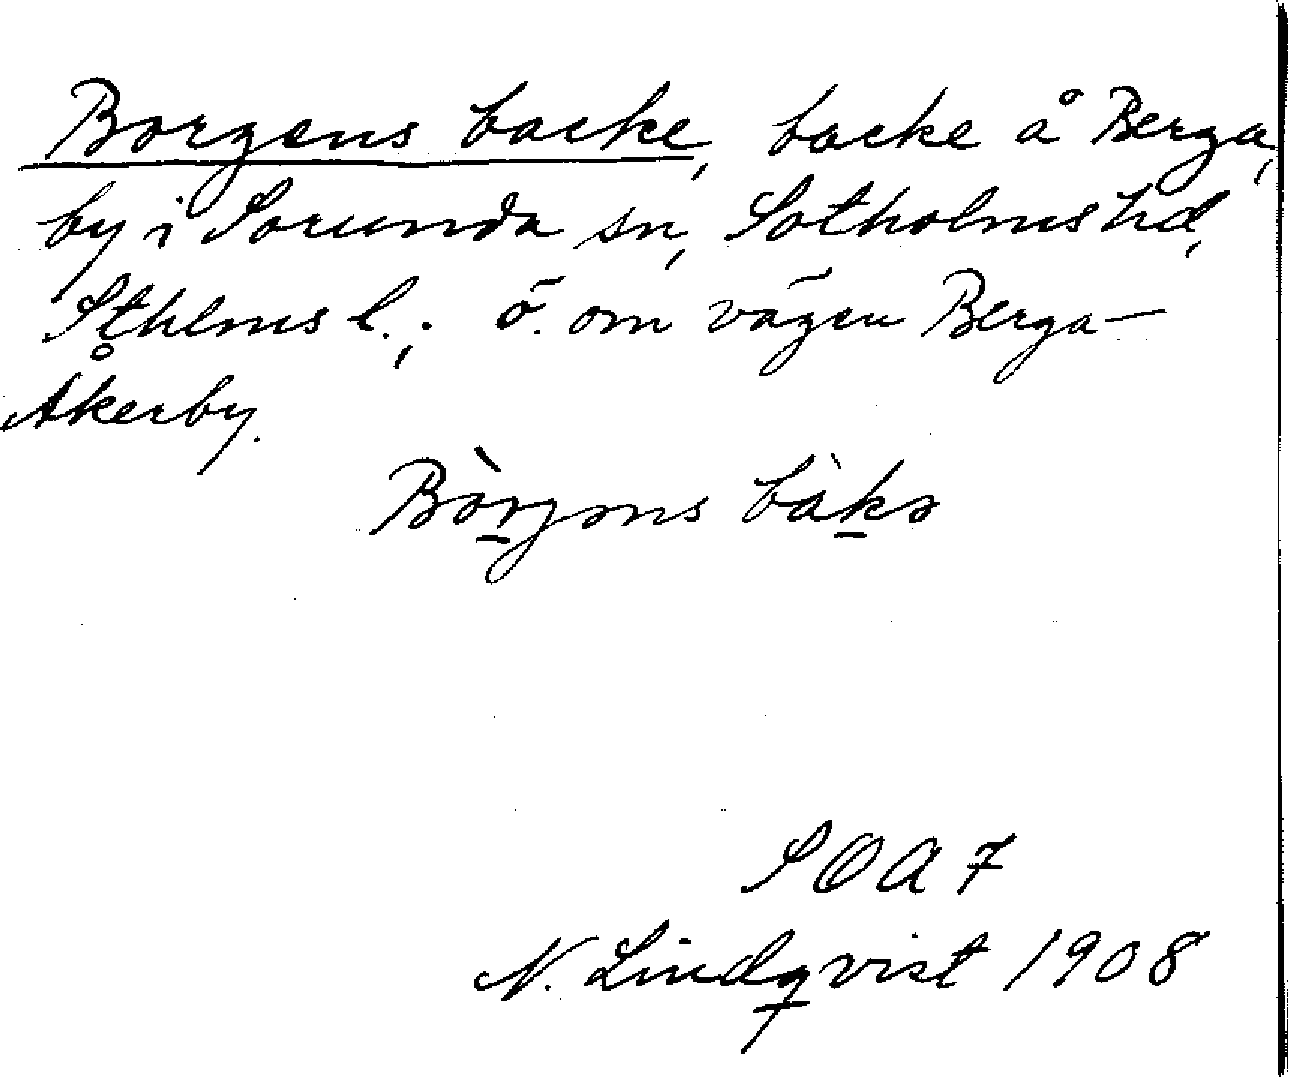 Borgens backe, backe å Berga,
by i Sorunda sn, Sotholms hd,
Sthlms l.; ö. om vägen Berga—
Åkerby.
Bòrgəns bàkə
SOA 7
N. Lindqvist 1908